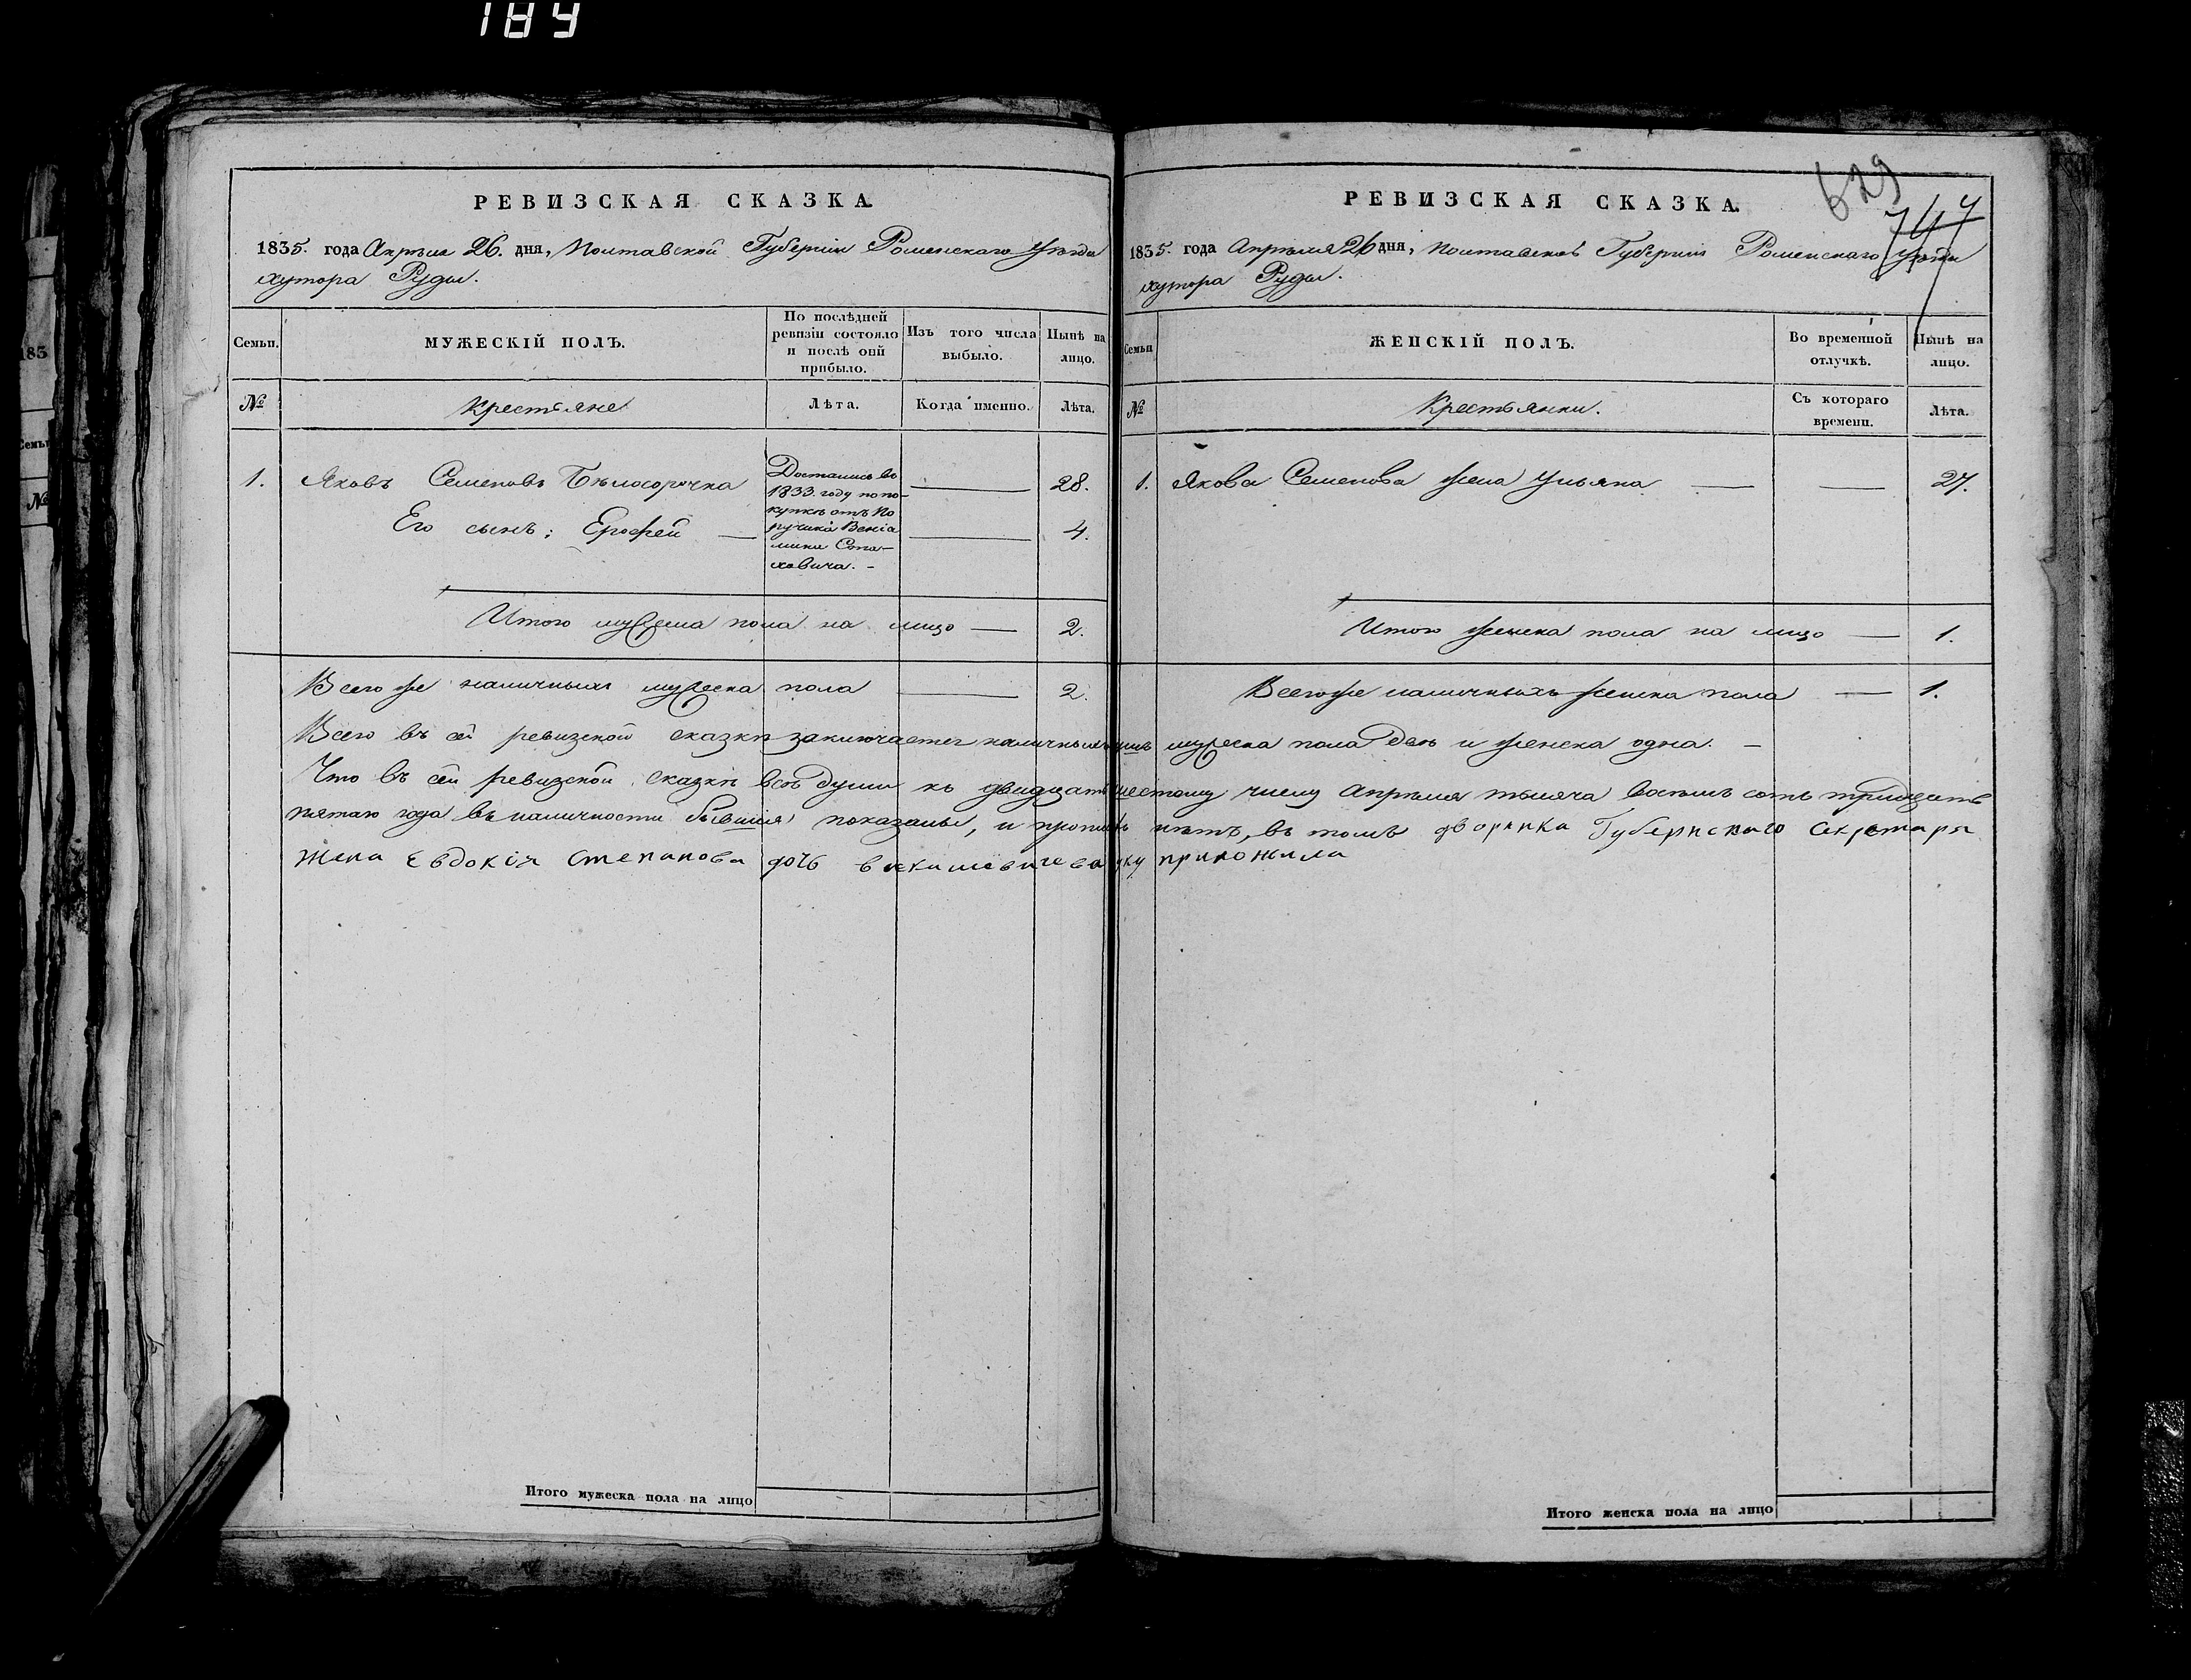 189
РЕВИЗСКАЯ СКАЗКА.
1835. года Апрѣля 26. дня, Полтавской Губерніи Роменскаго Уѣзда
хутора Руды.
Семьи.
МУЖЕСКІЙ ПОЛЪ.
По послѣдней
ревизіи состояло
и послѣ оной
прибыло.
Изъ того числа
выбыло.
Нынѣ на
лицо.
№
Крестьяне
Лѣта.
Когда именно.
Лѣта.
1.
Яковъ Семеновъ Бѣлосорочка
28.
Его сынъ: Ерофей
4.
Достались въ
1833. году по по-
купкѣ отъ По
ручика Веніа
мина
Итого мужеска пола на лицо — 2.
Всего же наличныхъ мужеска пола 2.
РЕВИЗСКАЯ СКАЗКА.
629
747
1835. года Апрѣля 26 дня, Полтавской Губерніи Роменскаго Уѣзда
хутора Руды.
Семьи
ЖЕНСКІЙ ПОЛЪ.
Во временной
отлучкѣ.
Нынѣ на
лицо.
№
Крестьянки.
Съ котораго
времени.
Лѣта.
1. Якова Семенова жена Ульяна — — 27.
Итого женска пола на лицо — 1.
Всего же наличныхъ женска пола — 1.
Всего въ сей ревизской сказкѣ заключается наличныхъ душъ мужеска пола двѣ и женска одна. —
Что въ сей ревизской сказкѣ всѣ души къ двадцать шестому числу Апрѣля тысяча восемь сотъ тридцать
пятаго года въ наличности бывшия показаны, и нѣтъ, въ томъ дворянка Губернскаго Секретаря
жена Евдокія Степанова дочь руку приложила
Итого мужеска пола на лицо
Итого женска пола на лицо